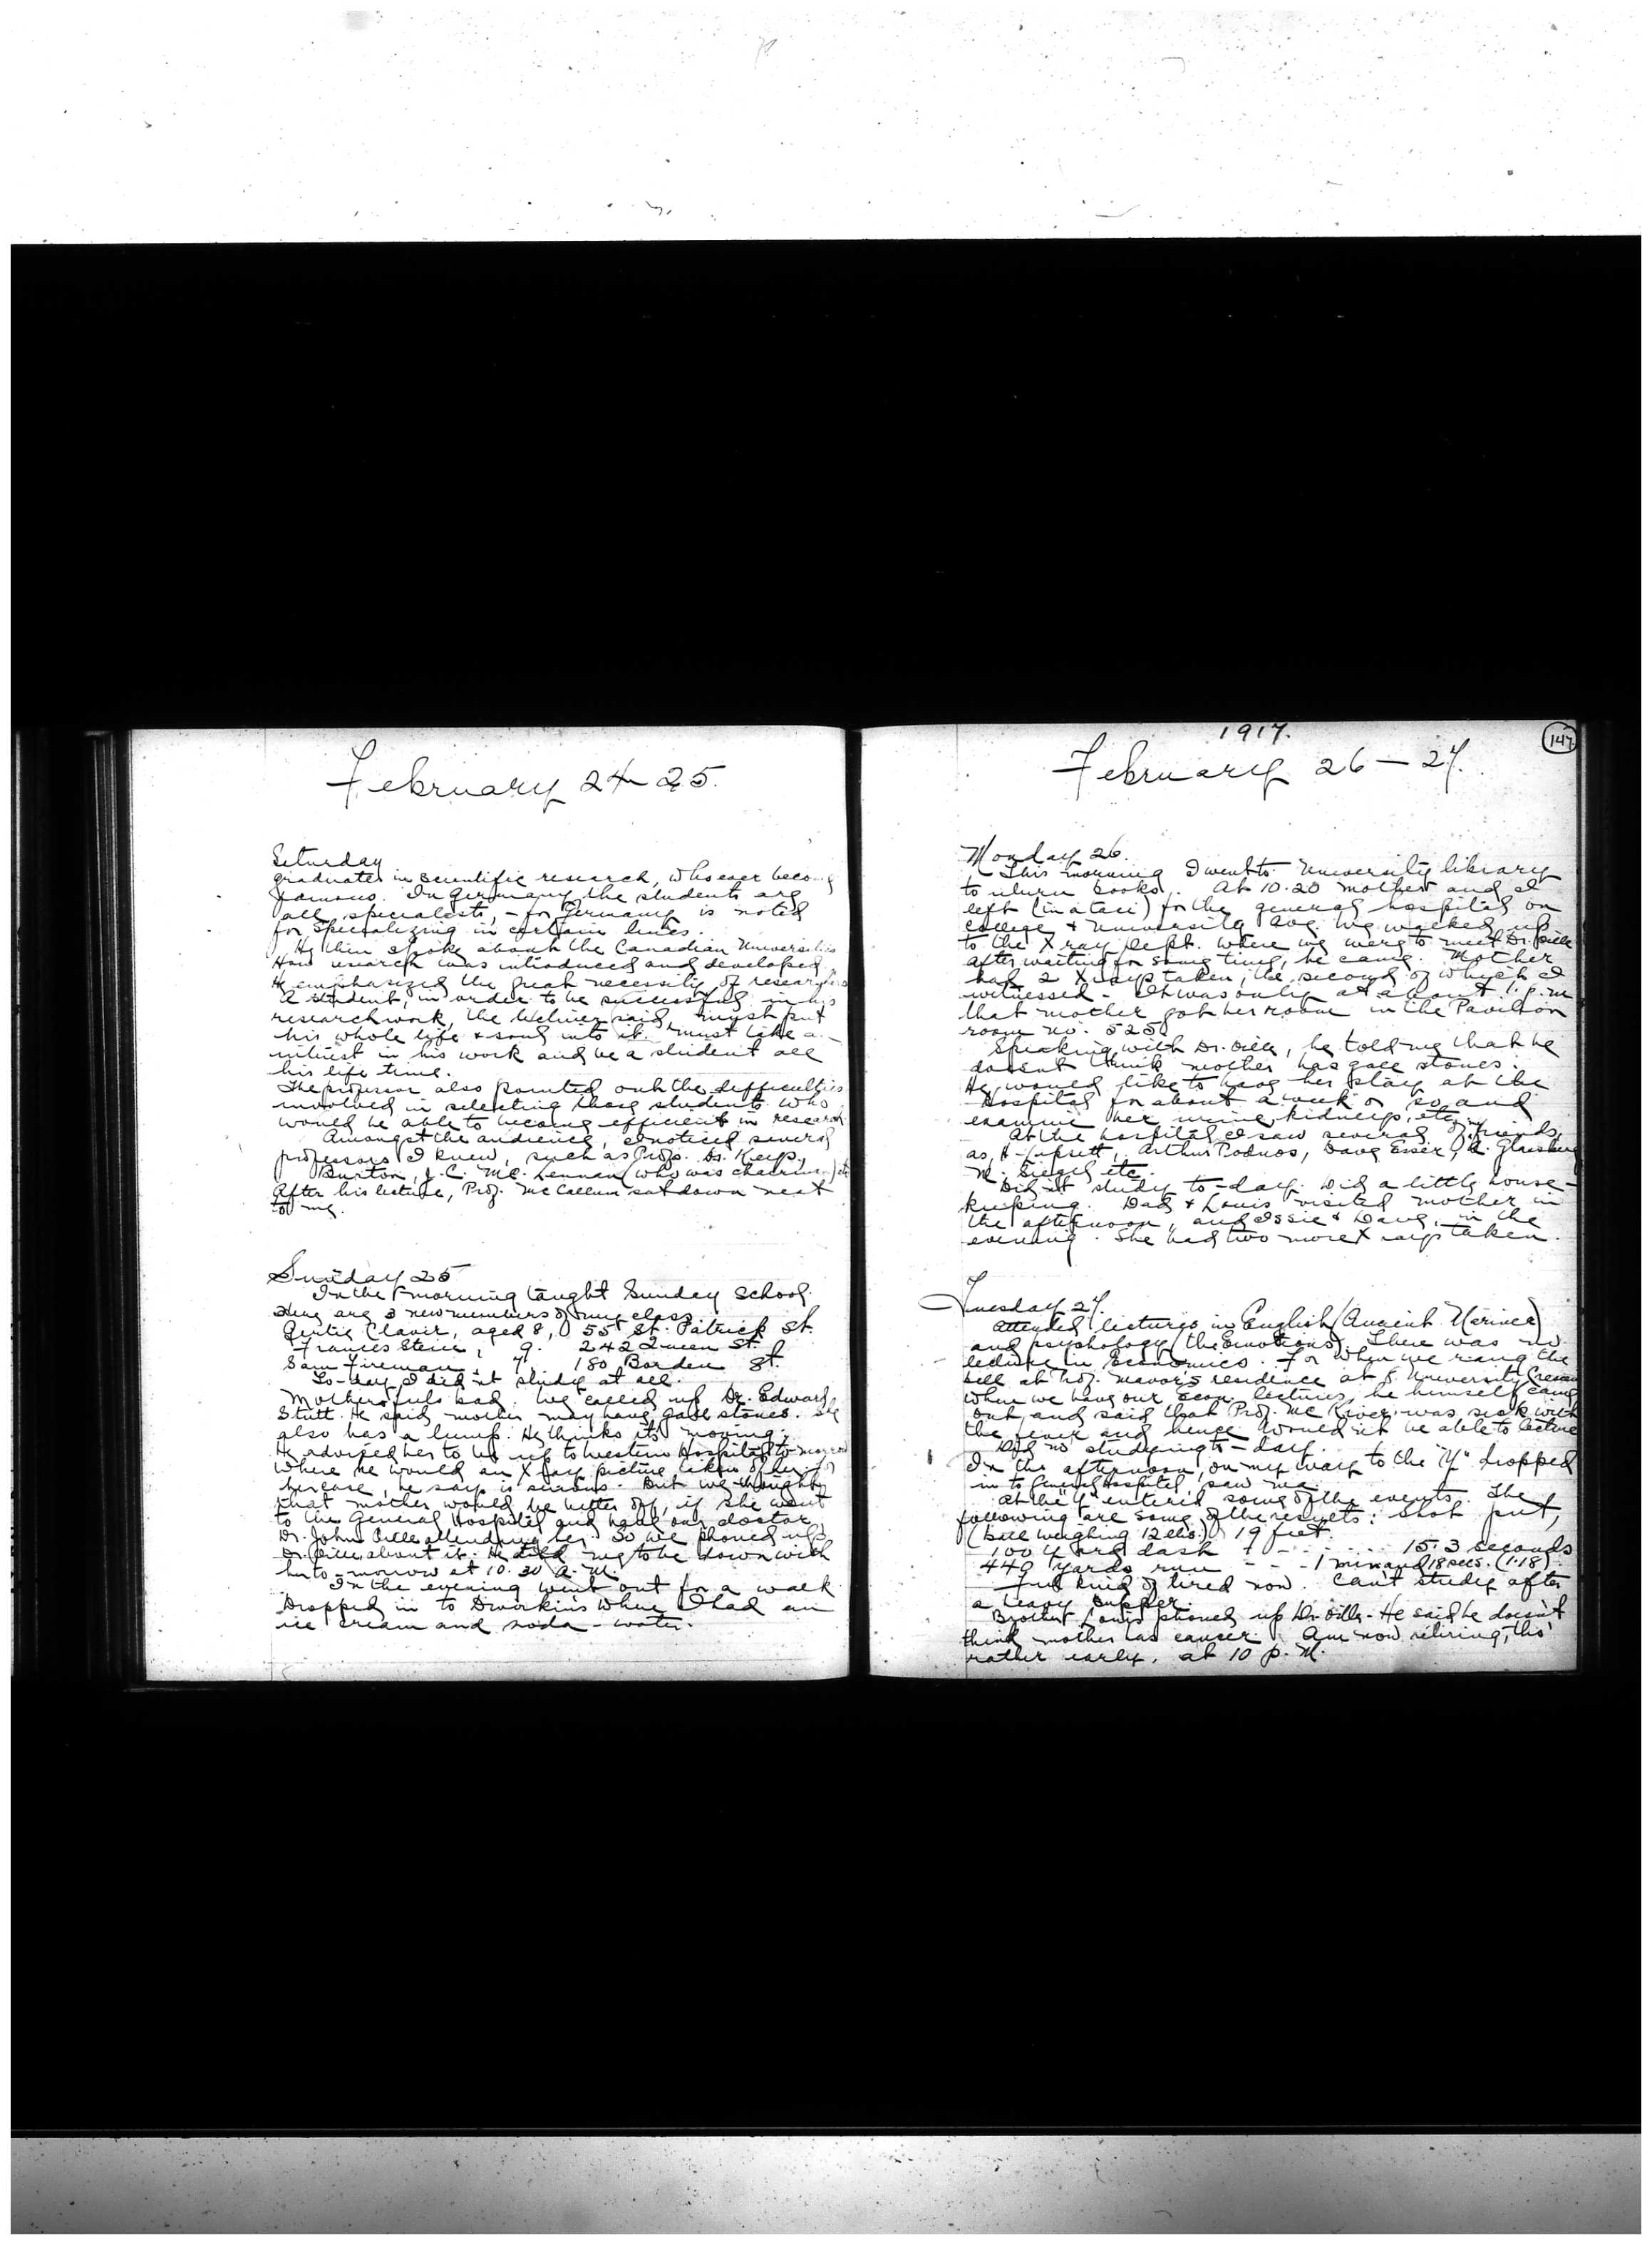 February 24-25.
Saturday
graduates in scientific research, who ever
famous. In Germany, the students are
all specialists, - for Germany is noted
for specializing in certain lines.
He then spoke about the Canadian Universities
How research was introduced and developed.
He emphasized the great necessity of
A student, in order to be successful in his
research work, the lecturer said, must put
his whole life & soul into it, must take
interest in his work and be a student all
his life time.
The professor also pointed out the difficulties
involved in selecting those students who
would be able to become efficient in research
Amongst the audience, I noticed several
professors I knew, such as Profs. Dr. Keys,
Burton, J. C. Mc. Lennan (who was chairman)
After his lecture, Prof. McCallum sat down next
to me.
Sunday 25
In the morning taught Sunday School.
Here are 3 new members of my class
Gertie Clavir, aged 8, 55 St. Patrick St.
Frances Stein, 9. 242 Queen St.
Sam Fireman, 7, 180 Borden St.
To-day I did n't study at all.
Mother feels bad. We called up Dr. Edward
Stutt. He said mother may have gall stones. She
also has a lump. He thinks its moving.
He advised her to be up to Western Hospital to-morrow
where he would an X Ray picture taken of her, for
her case, he says is serious. But we thought
that mother would be better off, if she went
to the General Hospital and have our doctor,
Dr. John Oille attending her. So we phoned up
Dr. Oille about it. He told me to be down with
her to-morrow at 10.30 A.M.
In the evening went out for a walk
Dropped in to Dworkin's where I had an
ice cream and soda-water.
1917.
147
February 26-27.
Monday 26.
This morning I went to University library
to return books. At 10.20 mother and I
left (in a taxi) for the general hospital on
College & University Ave. We walked up
to the X ray Dept. where we were to meet Dr. Oille
After waiting for some time, he came. Mother
had 2 X rays taken, the second of which I
witnessed - It was only at about 1. p.m
that mother got her room in the Pavilion
room no. 525
Speaking with Dr. Oille, he told me that he
doesn't think mother has gall stones.
He would like to have her stay at the
Hospital for about a week or so and
examine her urine, kidneys, etc.
At the hospital I saw several friends,
as, A. Lipsett, Arthur Podnos, Dave Esser,
M. Siegel etc.
Did n't study to-day. Did a little house-
keeping. Dad & Louis visited mother in
the afternoon, and Issie & Dave, in the
evening. She had two more X rays taken.
Tuesday 27.
Attended lectures in English (Ancient Mariner)
and psychology (the Emotions). There was no
lecture in Economics. For when we rang the
bell at Prof. Mavor's residence at 8 University Crescent
where we have our Econ. lectures, he himself came
out and said that Prof. Mc was sick with
the fever and hence would n't be able to lecture
Did no studying to-day.
In the afternoon, on my way to the "Y" dropped
in to General Hospital, saw ma.
At the "Y" entered some of the events. The
following are some of the results: Shot put,
(Ball weighing 12 lbs.) 19 feet.
100 yard dash - - - - 15.3 seconds
440 yards run - - - 1 min and 18 secs. (1.18).
Feel kind of tired now. Can't study after
a heavy supper.
Brother Louis phoned up Dr. Oille - He said he doesn't
think mother has cancer. Am now retiring, tho'
rather early, at 10 p.M.